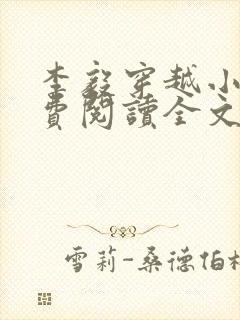 李毅穿越小
費閱讀全文
雪莉-桑德伯格